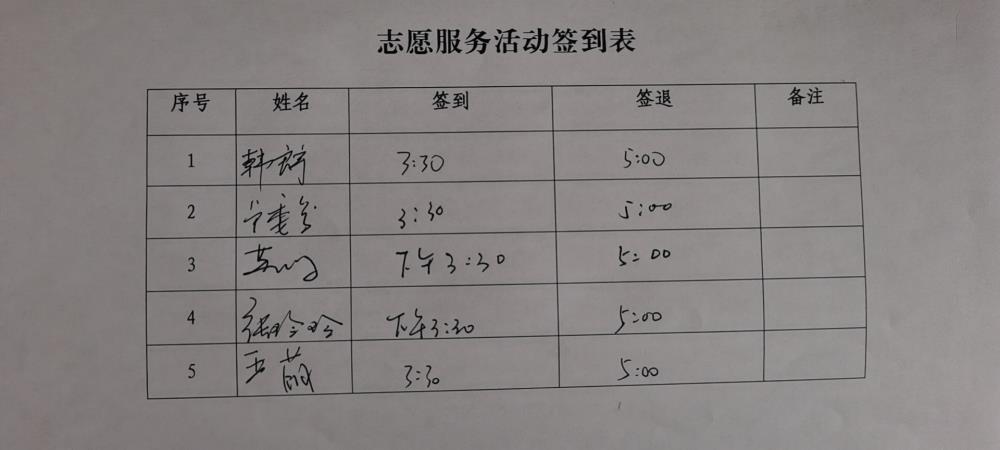 志愿服务活动签到表
序号 姓名 签到 签退 备注
1 3:30 5:00
2 3:30 5:00
3 下午3:30 5:00
4 张玲玲 下午3:30 5:00
5 王萌 3:30 5:00